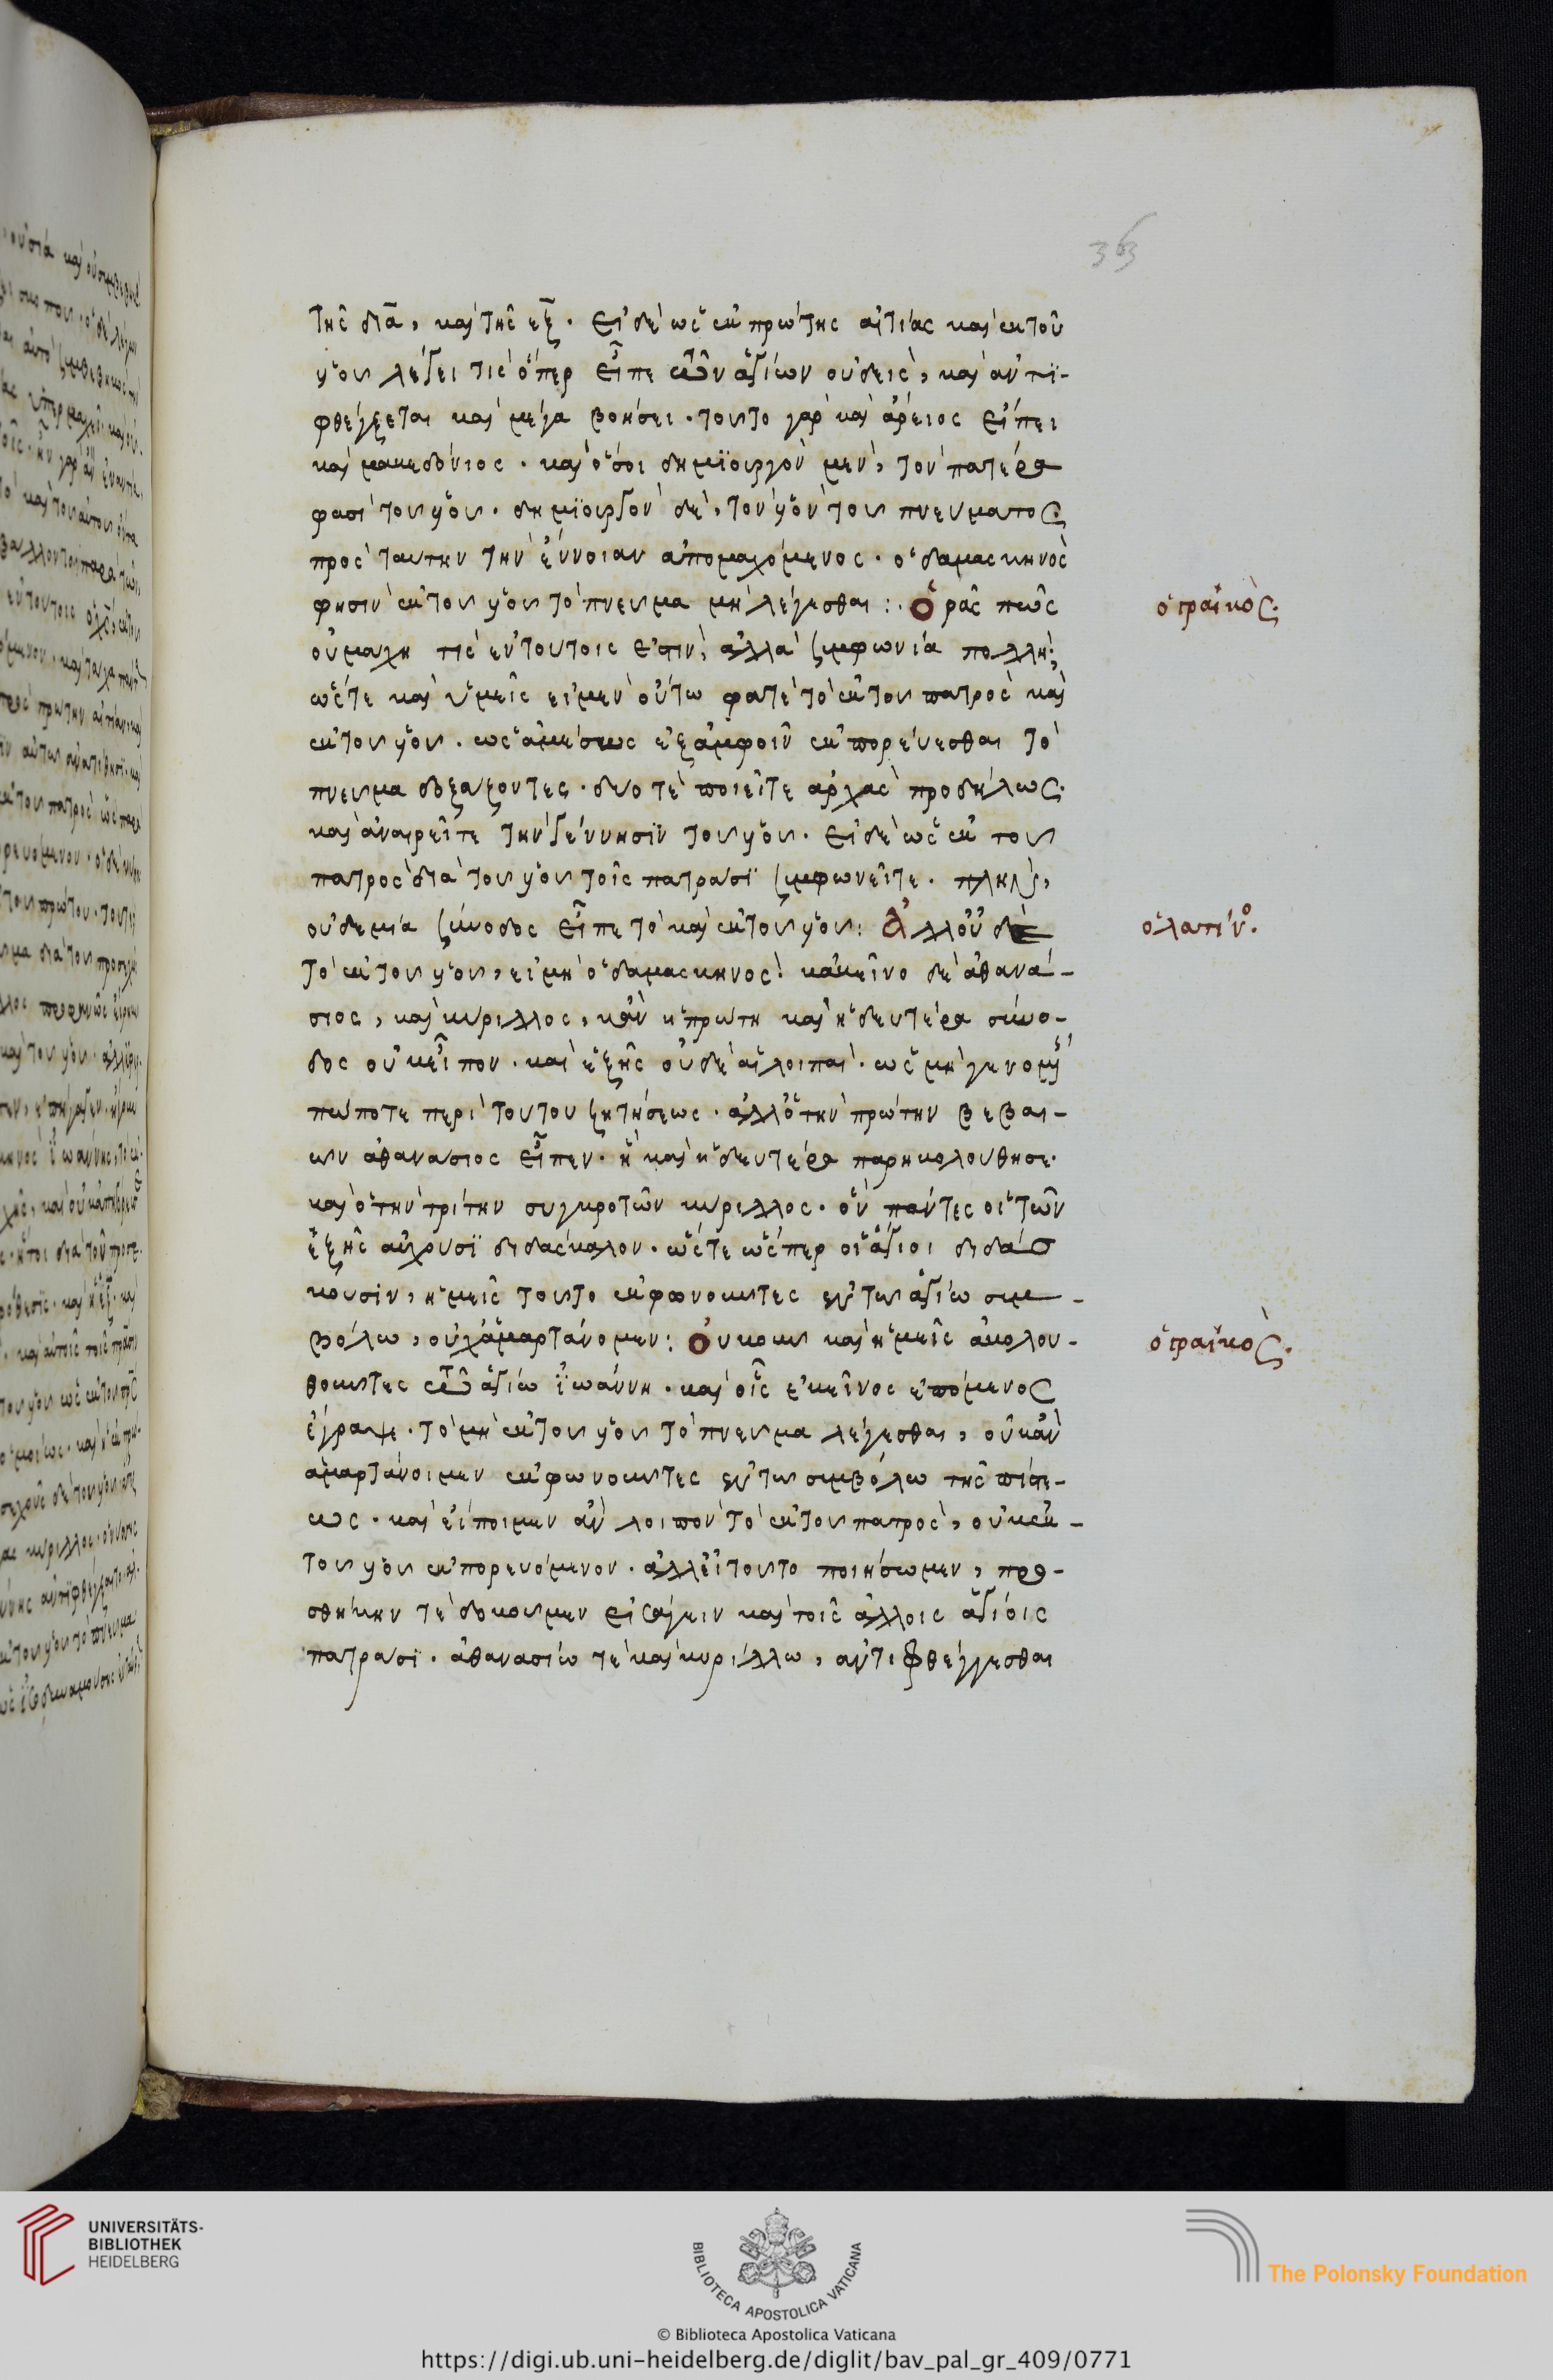 363
τῆς διὰ, καὶ τῆς ἐξ. Εἰ δὲ ὡς ἐκ πρώτης αἰτίας καὶ ἐκ τοῦ
υἱοῦ λέξει τίς ὅπερ εἶπε τῶν ἁγίων οὐδεὶς, καὶ ἀντι-
φθέγξεται καὶ μέγα βοήσει. τοῦτο γὰρ καὶ ἄρειος εἴπει
καὶ μακεδόνιος. καὶ ὅσοι δημϊουργὸν μὲν, τὸν πατέρα
φασὶ τοῦ υἱοῦ. δημϊουργὸν δὲ, τὸν υἱὸν τοῦ πνεύματος
πρὸς ταύτην τὴν ἔννοιαν ἀπομαχόμενος. ὁ δαμασκηνὸς
φησὶν ἐκ τοῦ υἱοῦ τὸ πνεῦμα μὴ λέγεσθαι:. Ὁρᾶς πῶς
οὐ μάχη τίς ἐν τούτοις ἐστὶν, ἀλλὰ συμφωνία πολλή;
ὥστε καὶ ὑμεῖς εἰ μὲν οὕτω φατὲ τὸ ἐκ τοῦ πατρὸς καὶ
ἐκ τοῦ υἱοῦ. ὡς ἀμέσως ἐξ ἀμφοῖν ἐκπορεύεσθαι τὸ
πνεῦμα δοξάζοντες. δύο τὲ ποιεῖτε ἀρχὰς προδήλως.
καὶ ἀναιρεῖτε τὴν γέννησϊν τοῦ υἱοῦ. Εἰ δὲ ὡς ἐκ τοῦ
πατρὸς διὰ τοῦ υἱοῦ τοῖς πατράσϊ συμφωνεῖτε. πλὴν,
οὐδεμία σύνοδος εἶπε τὸ καὶ ἐκ τοῦ υἱοῦ: Ἀλλ' οὐδὲ
τὸ ἐκ τοῦ υἱοῦ, εἰ μὴ ὁ δαμασκηνός! κἀκεῖνο δὲ ἀθανά-
σιος, καὶ κύριλλος, κἂν ἡ πρώτη καὶ ἡ δευτέρα σύνο-
δος οὐκ εἶπον. καὶ ἑξῆς οὐδὲ αἱ λοιπαί. ὡς μὴ γενομ
πώποτε περὶ τούτου ζητήσεως. ἀλλ' ὁ τὴν πρώτην βεβαι-
ῶν ἀθανάσιος εἶπεν. ᾗ καὶ ἡ δευτέρα παρηκολούθησε.
καὶ ὁ τὴν τρίτην συγκροτῶν κύριλλος. ὃν πάντες οἱ τῶν
ἑξῆς αὐχοῦσϊ διδάσκαλον. ὥστε ὥσπερ οἱ ἅγιοι διδάσ
κουσιν, ἡμεῖς τοῦτο ἐκφωνοῦντες ἐν τῷ ἁγίω συμ-
βόλω, οὐχ ἁμαρτάνομεν: Οὐκοῦν καὶ ἡμεῖς ἀκολου-
θοῦντες τῶ ἁγίω ἰωάννη. καὶ οἷς ἐκεῖνος ἑπόμενος
ἔγραψε. τὸ μὴ ἐκ τοῦ υἱοῦ τὸ πνεῦμα λέγεσθαι, οὐκ ἂν
ἁμαρτάνοιμεν ἐκφωνοῦντες ἐν τῷ συμβόλω τῆς πίστε-
ως. καὶ εἴποιμεν ἂν λοιπὸν τὸ ἐκ τοῦ πατρὸς, οὐκ ἐκ
τοῦ υἱοῦ ἐκπορευόμενον. ἀλλ' εἰ τοῦτο ποιήσωμεν, προ-
σθήκην τὲ δοκοῦμεν εἰσάγειν καὶ τοῖς ἄλλοις ἁγίοις
πατράσϊ. ἀθανασίω τὲ καὶ κυρίλλω, ἀντιφθέγγεσθαι
ὁ γραικὸς.
ὁ λατίνο.
ὁ γραικὸς.
UNIVERSITÄTS-
BIBLIOTHEK
HEIDELBERG
BIBLIOTECA APOSTOLICA VATICANA
The Polonsky Foundation
© Biblioteca Apostolica Vaticana
https://digi.ub.uni-heidelberg.de/diglit/bav_pal_gr_409/0771